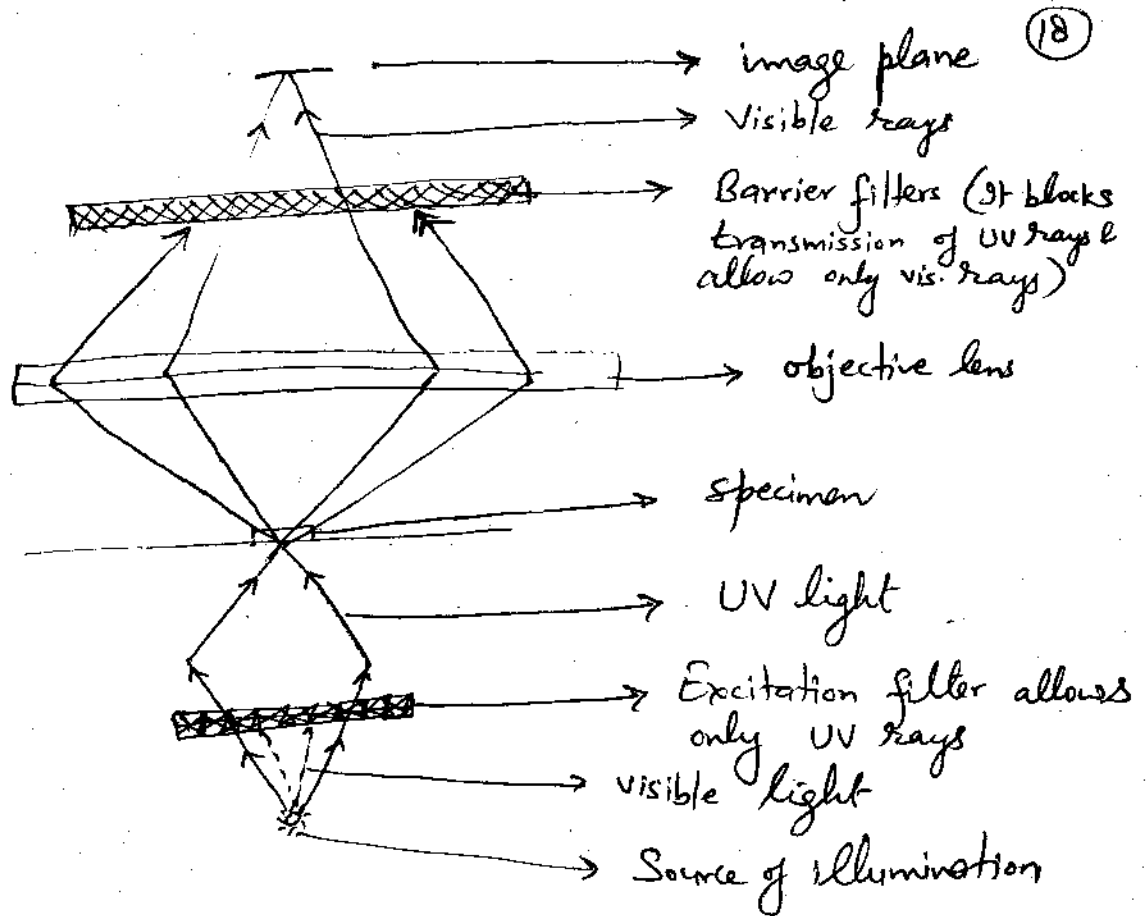 18
image plane
Visible rays
Barrier filters (It blocks
transmission of UV rays &
allow only vis. rays)
objective lens
specimen
UV light
Excitation filter allows
only UV rays
visible light
Source of illumination